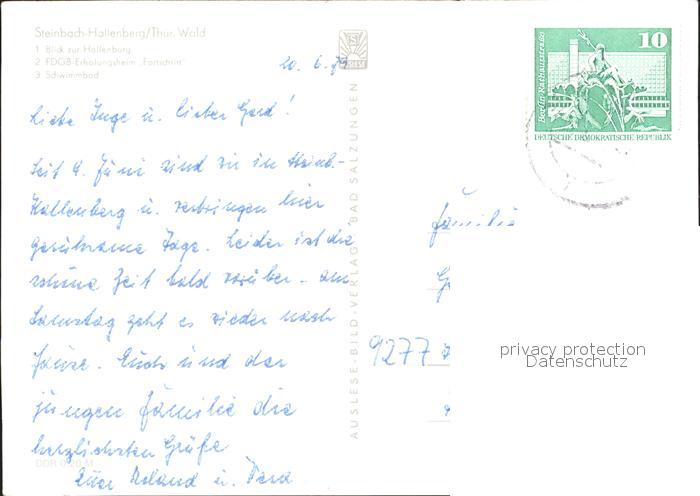 Steinbach-Hallenberg/Thür. Wald
1 Blick zur Hallenburg
2 FDGB-Erholungsheim „Fortschritt"
3 Schwimmbad
20. 6. 79
Liebe Inge u. lieber Gerd!
Seit 4. Juni sind wir in Steinb.-
Hallenberg u. verbringen hier
geruhsame Tage. Leider ist die
schöne Zeit bald vorüber. Am
Samstag geht es wieder nach
Hause. Euch und der
jungen Familie die
herzlichsten Grüße
Eure Roland u.
DDR 0,20 M
AUSLESE-BILD-VERLAG BAD SALZUNGEN
Berlin-Rathausstraße
10
DEUTSCHE DEMOKRATISCHE REPUBLIK
Familie
9277
privacy protection
Datenschutz